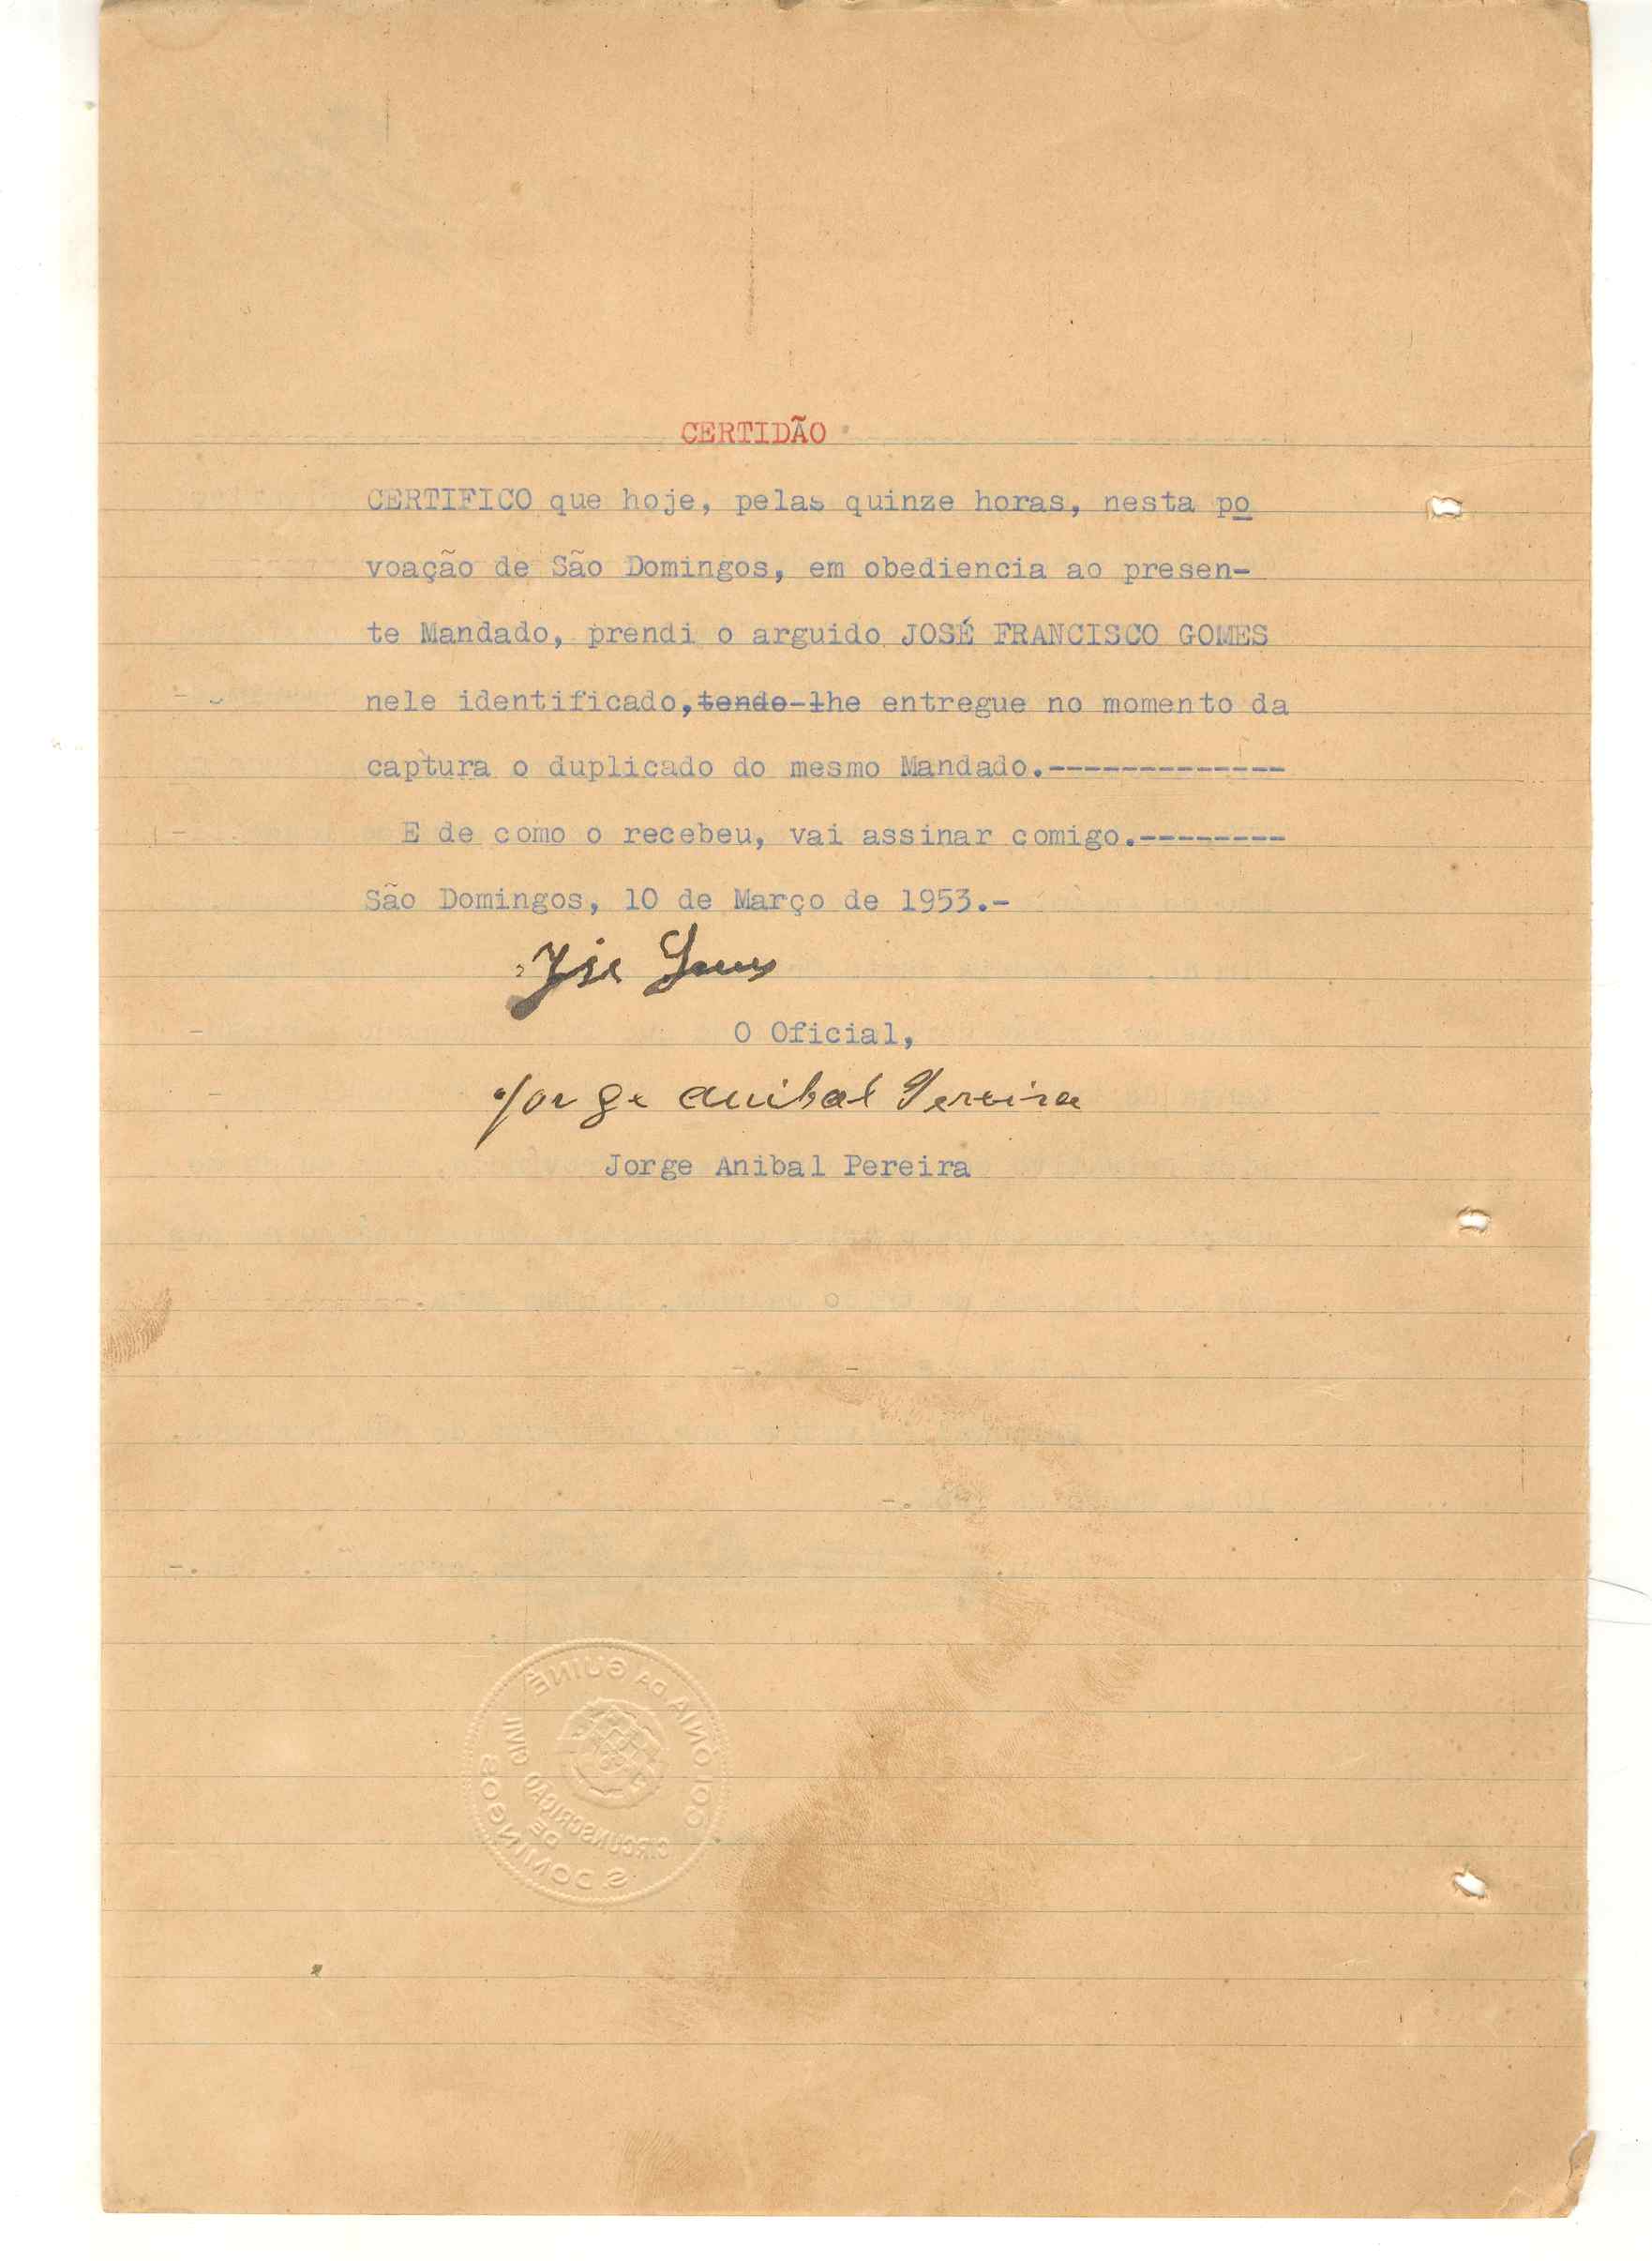 CERTIDÃO
CERTIFICO que hoje, pelas quinze horas, nesta po
voação de São Domingos, em obediencia ao presen-
te Mandado, prendi o arguido JOSÉ FRANCISCO GOMES
nele identificado, tendo-lhe entregue no momento da
captura o duplicado do mesmo Mandado.-------------
E de como o recebeu, vai assinar comigo.--------
São Domingos, 10 de Março de 1953.-
José Gomes
O Oficial,
Jorge Anibal Pereira
Jorge Anibal Pereira
COLÓNIA DA GUINÉ
CIRCUNSCRIÇÃO CIVIL
DE
S. DOMINGOS